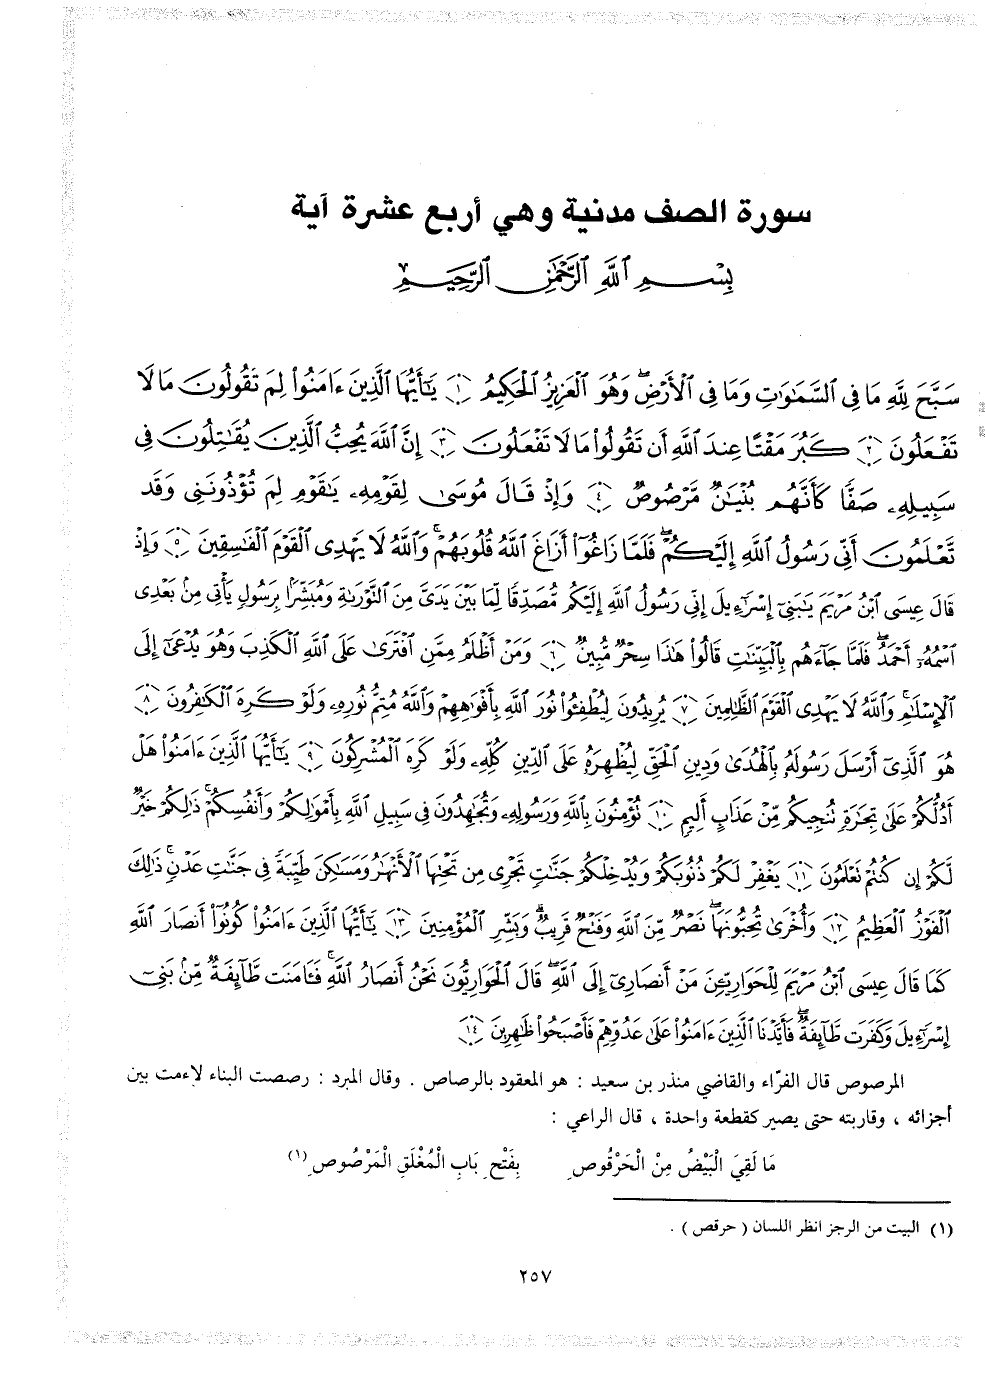 سورة الصف مدنية وهي أربع عشرة آية
بِسْمِ ٱللَّهِ ٱلرَّحْمَٰنِ ٱلرَّحِيمِ
سَبَّحَ لِلَّهِ مَا فِى ٱلسَّمَٰوَٰتِ وَمَا فِى ٱلْأَرْضِ ۖ وَهُوَ ٱلْعَزِيزُ ٱلْحَكِيمُ ﴿١﴾ يَٰٓأَيُّهَا ٱلَّذِينَ ءَامَنُوا۟ لِمَ تَقُولُونَ مَا لَا
تَفْعَلُونَ ﴿٢﴾ كَبُرَ مَقْتًا عِندَ ٱللَّهِ أَن تَقُولُوا۟ مَا لَا تَفْعَلُونَ ﴿٣﴾ إِنَّ ٱللَّهَ يُحِبُّ ٱلَّذِينَ يُقَٰتِلُونَ فِى
سَبِيلِهِۦ صَفًّا كَأَنَّهُم بُنْيَٰنٌ مَّرْصُوصٌ ﴿٤﴾ وَإِذْ قَالَ مُوسَىٰ لِقَوْمِهِۦ يَٰقَوْمِ لِمَ تُؤْذُونَنِى وَقَد
تَّعْلَمُونَ أَنِّى رَسُولُ ٱللَّهِ إِلَيْكُمْ ۖ فَلَمَّا زَاغُوٓا۟ أَزَاغَ ٱللَّهُ قُلُوبَهُمْ ۚ وَٱللَّهُ لَا يَهْدِى ٱلْقَوْمَ ٱلْفَٰسِقِينَ ﴿٥﴾ وَإِذْ
قَالَ عِيسَى ٱبْنُ مَرْيَمَ يَٰبَنِىٓ إِسْرَٰٓءِيلَ إِنِّى رَسُولُ ٱللَّهِ إِلَيْكُم مُّصَدِّقًا لِّمَا بَيْنَ يَدَىَّ مِنَ ٱلتَّوْرَىٰةِ وَمُبَشِّرًۢا بِرَسُولٍ يَأْتِى مِنۢ بَعْدِى
ٱسْمُهُۥٓ أَحْمَدُ ۖ فَلَمَّا جَآءَهُم بِٱلْبَيِّنَٰتِ قَالُوا۟ هَٰذَا سِحْرٌ مُّبِينٌ ﴿٦﴾ وَمَنْ أَظْلَمُ مِمَّنِ ٱفْتَرَىٰ عَلَى ٱللَّهِ ٱلْكَذِبَ وَهُوَ يُدْعَىٰٓ إِلَى
ٱلْإِسْلَٰمِ ۚ وَٱللَّهُ لَا يَهْدِى ٱلْقَوْمَ ٱلظَّٰلِمِينَ ﴿٧﴾ يُرِيدُونَ لِيُطْفِـُٔوا۟ نُورَ ٱللَّهِ بِأَفْوَٰهِهِمْ وَٱللَّهُ مُتِمُّ نُورِهِۦ وَلَوْ كَرِهَ ٱلْكَٰفِرُونَ ﴿٨﴾
هُوَ ٱلَّذِىٓ أَرْسَلَ رَسُولَهُۥ بِٱلْهُدَىٰ وَدِينِ ٱلْحَقِّ لِيُظْهِرَهُۥ عَلَى ٱلدِّينِ كُلِّهِۦ وَلَوْ كَرِهَ ٱلْمُشْرِكُونَ ﴿٩﴾ يَٰٓأَيُّهَا ٱلَّذِينَ ءَامَنُوا۟ هَلْ
أَدُلُّكُمْ عَلَىٰ تِجَٰرَةٍ تُنجِيكُم مِّنْ عَذَابٍ أَلِيمٍ ﴿١٠﴾ تُؤْمِنُونَ بِٱللَّهِ وَرَسُولِهِۦ وَتُجَٰهِدُونَ فِى سَبِيلِ ٱللَّهِ بِأَمْوَٰلِكُمْ وَأَنفُسِكُمْ ۚ ذَٰلِكُمْ خَيْرٌ
لَّكُمْ إِن كُنتُمْ تَعْلَمُونَ ﴿١١﴾ يَغْفِرْ لَكُمْ ذُنُوبَكُمْ وَيُدْخِلْكُمْ جَنَّٰتٍ تَجْرِى مِن تَحْتِهَا ٱلْأَنْهَٰرُ وَمَسَٰكِنَ طَيِّبَةً فِى جَنَّٰتِ عَدْنٍ ۚ ذَٰلِكَ
ٱلْفَوْزُ ٱلْعَظِيمُ ﴿١٢﴾ وَأُخْرَىٰ تُحِبُّونَهَا ۖ نَصْرٌ مِّنَ ٱللَّهِ وَفَتْحٌ قَرِيبٌ ۗ وَبَشِّرِ ٱلْمُؤْمِنِينَ ﴿١٣﴾ يَٰٓأَيُّهَا ٱلَّذِينَ ءَامَنُوا۟ كُونُوٓا۟ أَنصَارَ ٱللَّهِ
كَمَا قَالَ عِيسَى ٱبْنُ مَرْيَمَ لِلْحَوَارِيِّـۧنَ مَنْ أَنصَارِىٓ إِلَى ٱللَّهِ ۖ قَالَ ٱلْحَوَارِيُّونَ نَحْنُ أَنصَارُ ٱللَّهِ ۖ فَـَٔامَنَت طَّآئِفَةٌ مِّنۢ بَنِىٓ
إِسْرَٰٓءِيلَ وَكَفَرَت طَّآئِفَةٌ ۖ فَأَيَّدْنَا ٱلَّذِينَ ءَامَنُوا۟ عَلَىٰ عَدُوِّهِمْ فَأَصْبَحُوا۟ ظَٰهِرِينَ ﴿١٤﴾
المرصوص قال الفرّاء والقاضي منذر بن سعيد : هو المعقود بالرصاص . وقال المبرد : رصصت البناء لاءمت بين
أجزائه ، وقاربته حتى يصير كقطعة واحدة ، قال الراعي :
مَا لَقِيَ الْبَيْضُ مِنْ الْحَرْقُوصِ بِفَتْحِ بَابِ الْمُغْلَقِ الْمَرْصُوصِ (١)
(١) البيت من الرجز انظر اللسان ( حرقص ) .
٢٥٧